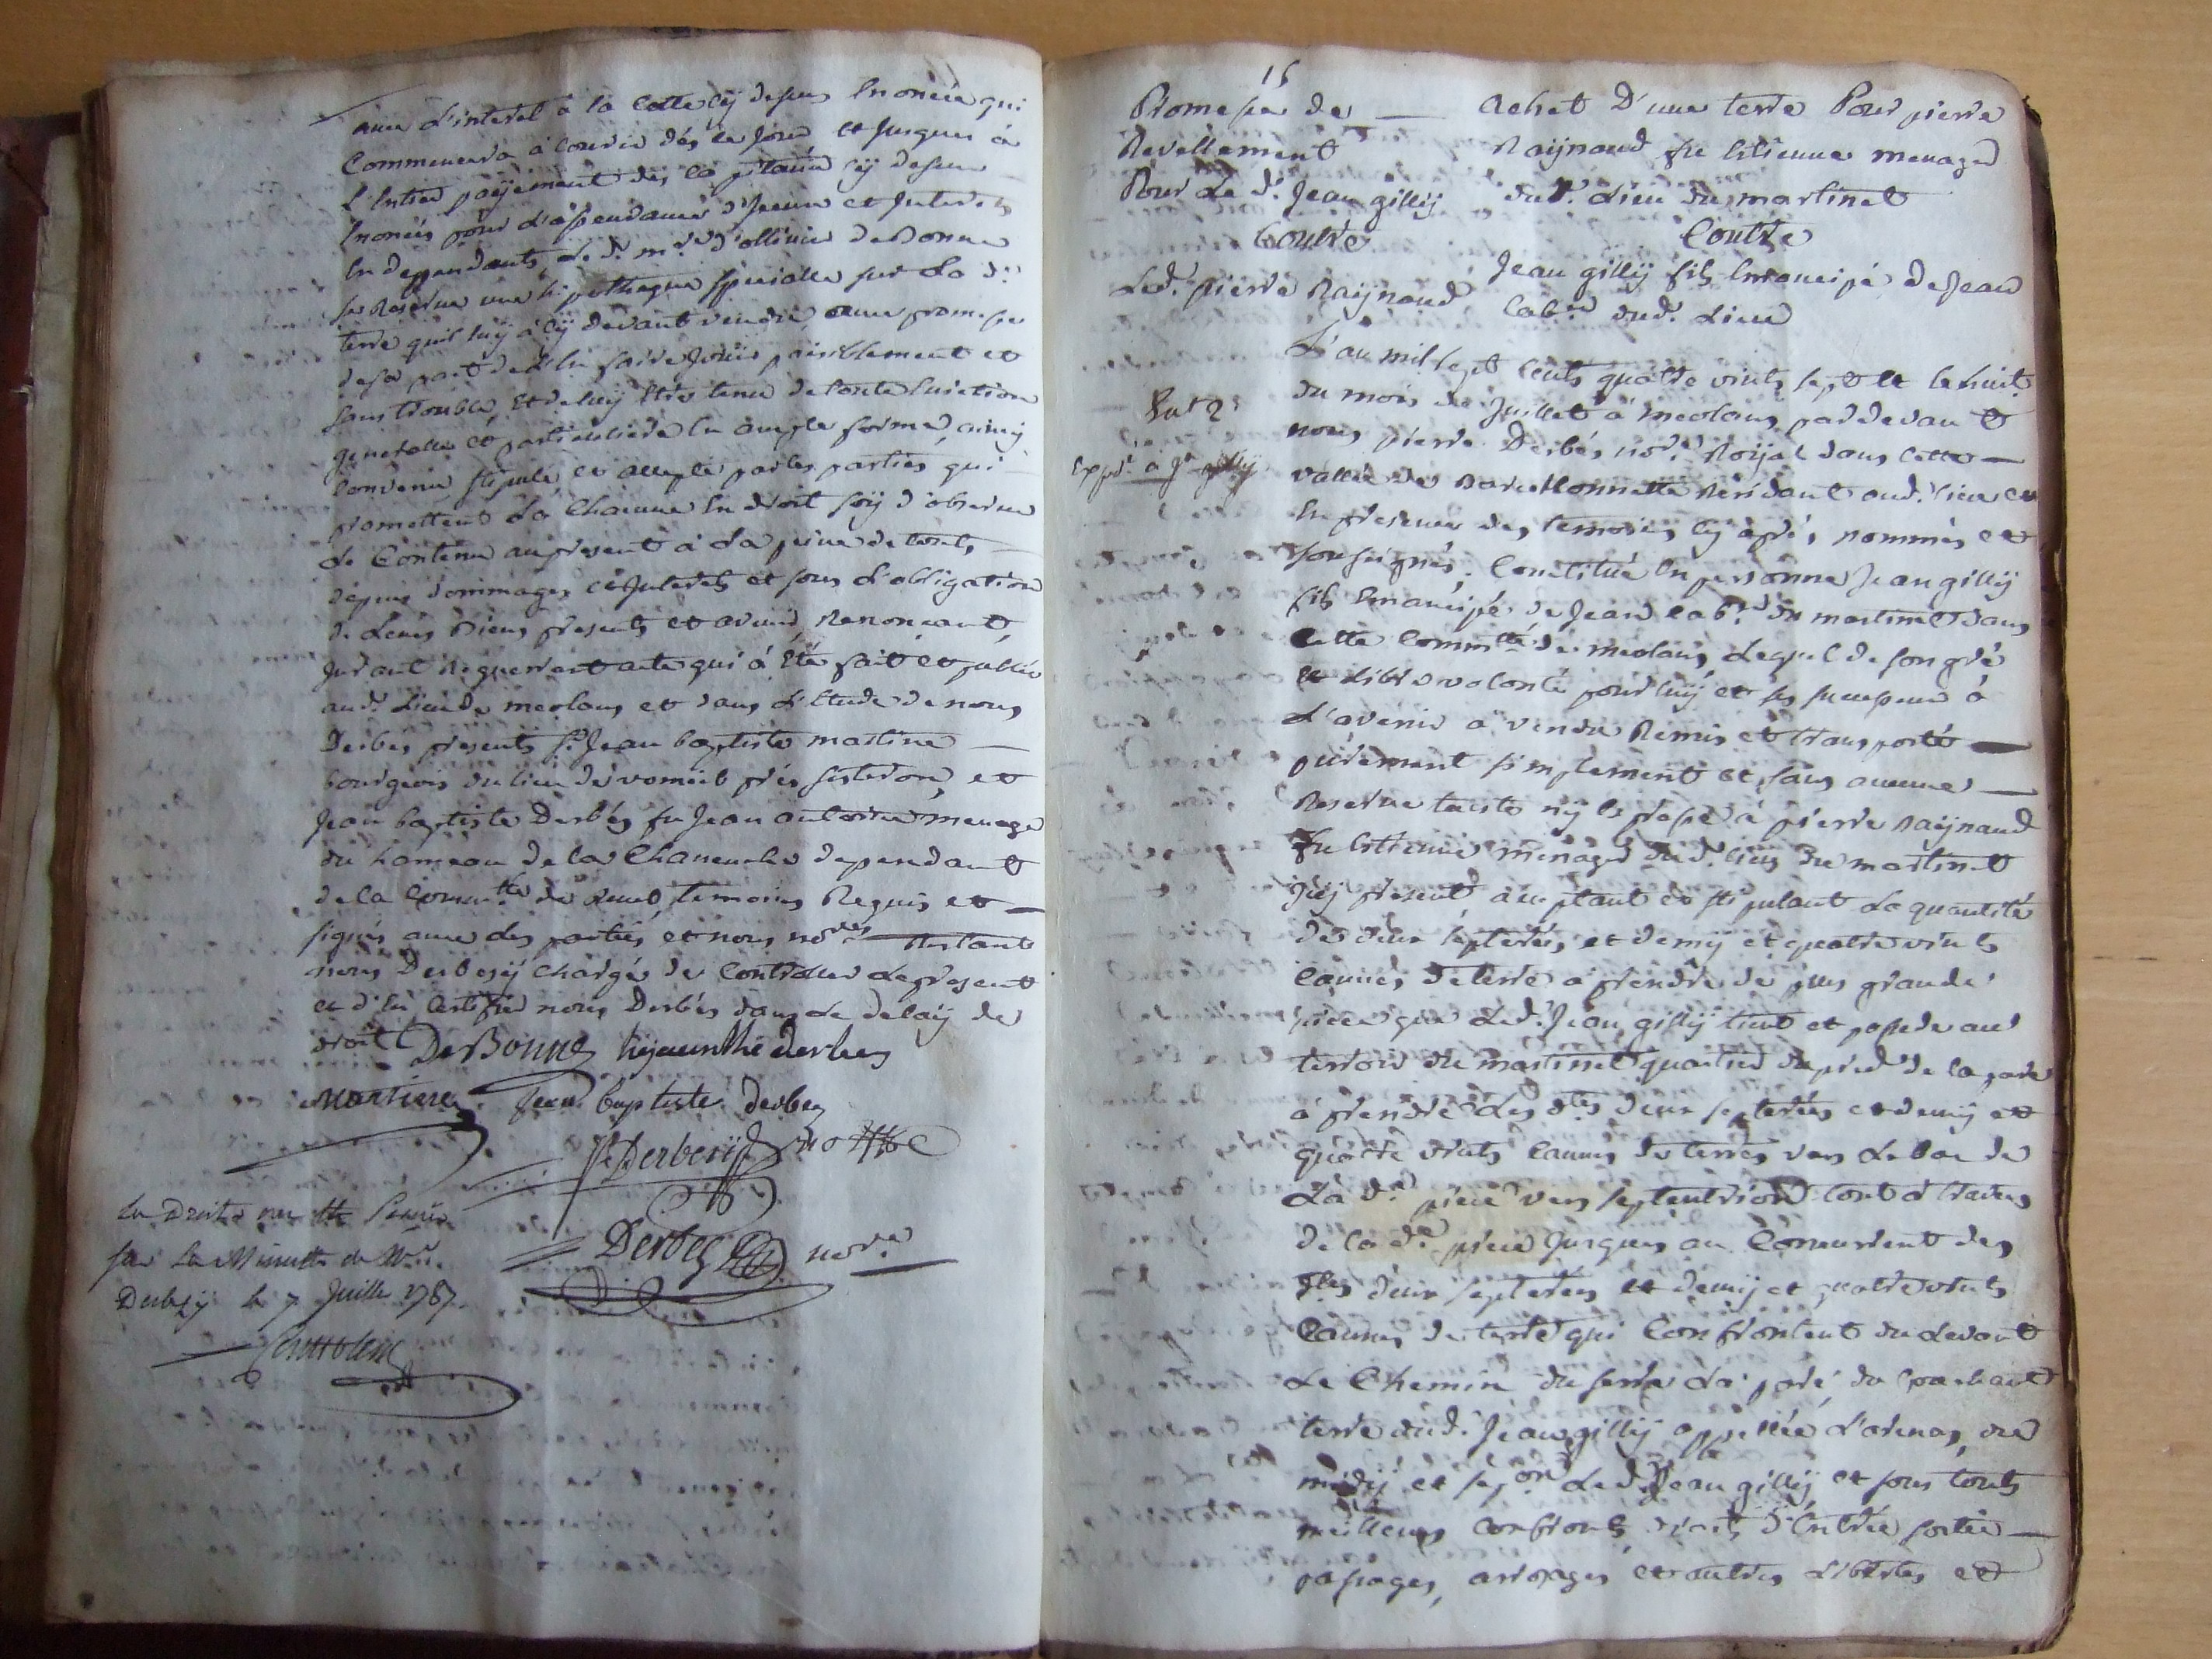 avec l'interet a la cotte cy dessus Enoncée qui
Commencera à courir dés ce jour et jusques à
L'Entier payement des capitaux cy dessus
Enoncés pour d'iceux et Interets
En deppendants Led. m.re d'ollivier DeBonne
se Reserve une hipotheque specialle sur La d.e
terre quil luy a cy devant vendue, avec promesse
de sa part de L'En faire jouir paisiblement et
sans trouble, Et de luy Etre tenu de toute Eviction
generalle et particuliere En ample forme, ainsy
Convenu stipulé et accepté par les parties qui
promettent La Chacune En droit soy d'observer
Le Contenu au present à La peine de touts
depens dommages et Interets et sous L'obligation
de Leurs Biens presents et avenir Renoncant,
Jurant Requerrent acte qui à Eté fait et publié
aud. Lieu de meolans et dans L'Etude de nous
Derbés presents S.r Jean baptiste martine
bourgeois du lieu de vomeil prés sisteron, et
Jean baptiste Derbés fu Jean antoine menager
du hameau de la Chanenche dependant
de la Commu.té de Lauzet, temoins Requis et
signés avec les parties et nous no.res Restant
nous Derbesÿ chargé de Controller Le present
et d'En Certifier nous Derbés dans Le delaÿ de
droit DeBonne hijacinthe derbes
Martiene Jean baptiste derbes
Derbesÿ notte
Les Droits ont été perçus
sur La Minutte de M.e
Derbesÿ le 7 Juillet 1787.
Derbes no.re
16
Promesse de
Revellement
Pour Le d. Jean gillÿ
Contre
Led. pierre Raÿnaud
achet D'une terre Pour pierre
Raÿnaud fu Etienne menager
dud. Lieu du martinet
Contre
Jean gillÿ fils Emancipé de Jean
lab.r dud. Lieu
Ext 2
Exped.e à J.n gillÿ
L'an mil sept Cents quatre vints sept et le huit
du mois de Juillet à meolans pardevant
nous pierre Derbés no.re Roÿal dans cette
vallée de Barcellonnette Residant aud. lieu et
En presence des temoins cy aprés nommés et
soussignés, Constitué En personne Jean gillÿ
fils Emancipé de Jean lab.r du martinet dans
Cette Commu.té de meolans, Lequel de son gré
et Libre volonté pour luÿ et ses successeurs à
L'avenir à vendu Remis et transporté
purement simplement et sans aucune
Reserve tacite nÿ Expresse à pierre Raÿnaud
fu Ettienne menager dud. lieu du martinet
Icÿ present acceptant et stipulant La quantité
de deux septerées et demÿ et quatre vints
Cannes de terre à prendre de plus grande
piece que Led. Jean gillÿ tient et possede au
terroir du martinet quartier du pied de la pare
à prendre Les d.tes deux septerées et demÿ et
quatre vints Cannes de terre vers Le bas de
La d.e piece vers septentrion tout à travers
de la d.e piece Jusques au Concurrent des
d.tes deux septerées et demÿ et quatre vints
Cannes de terre qui Confrontent du Levant
Le Chemin du serre La paré du Couchant
terre dud. Jean gillÿ appellée L'arenas, du
midÿ et sep.on Led. Jean gillÿ et sous touts
meilleurs Confronts, droits d'Entrée sortie
passages, arrosages et autres Libertés et